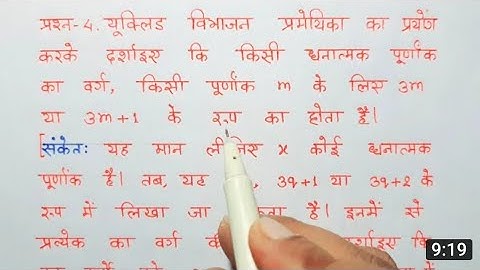 प्रश्न-4. यूक्लिड विभाजन प्रमेयिका का प्रयोग
करके दर्शाइए कि किसी धनात्मक पूर्णांक
का वर्ग, किसी पूर्णांक m के लिए 3m
या 3m+1 के रूप का होता है।
[संकेतः यह मान लीजिए x कोई धनात्मक
पूर्णांक है। तब, यह , 3q+1 या 3q+2 के
रूप में लिखा जा है। इनमें से
प्रत्येक का वर्ग कि
9:19